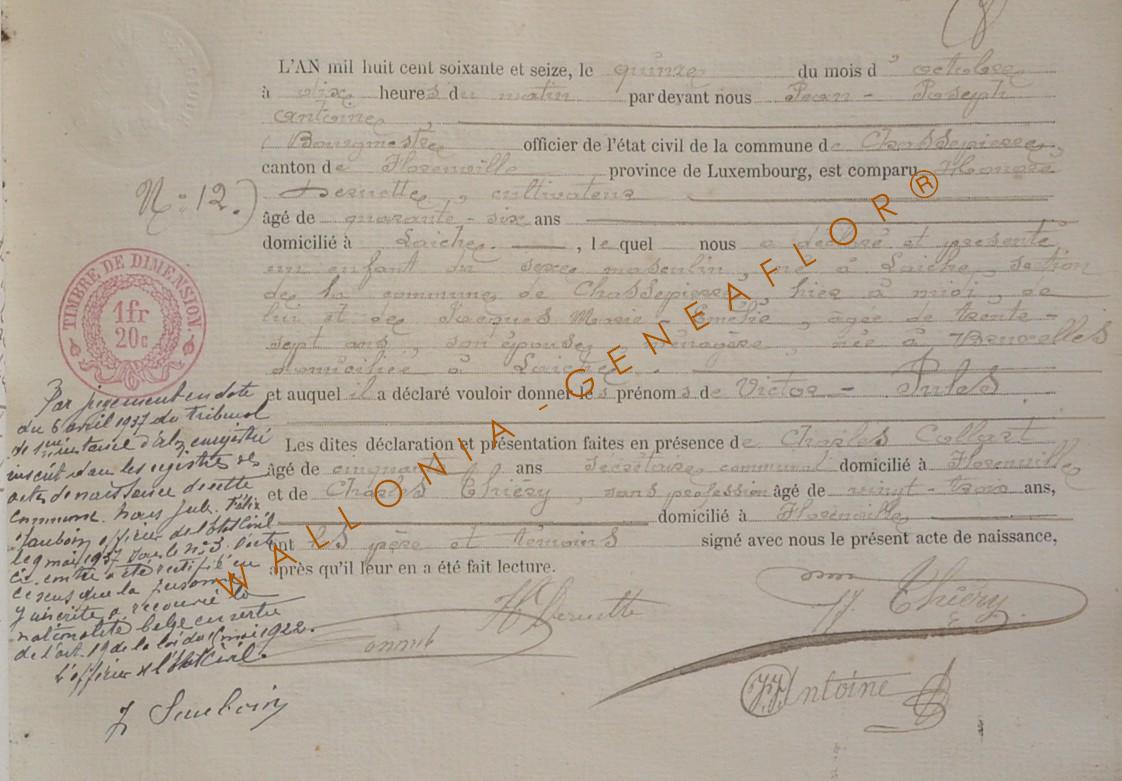 L'AN mil huit cent soixante et seize, le quinze du mois d'octobre
à dix heures du matin par devant nous Jean - Joseph
Antoine,
Bourgmestre officier de l'état civil de la commune de Chassepierre,
canton de Florenville province de Luxembourg, est comparu Honoré
N° 12.) Dernette, cultivateur
âgé de quarante - six ans
domicilié à Laiche. , lequel nous a déclaré et présenté
un enfant du sexe masculin, né à Laiche, section
de la commune de Chassepierre, hier à midi, de
lui et de Jacques Marie - Amélie, âgée de trente -
sept ans, son épouse, ménagère, née à Bruxelles
domiciliée à Laiche.
et auquel il a déclaré vouloir donner les prénoms de Victor - Jules
Les dites déclaration et présentation faites en présence de Charles Collart
âgé de cinquante ans secrétaire communal domicilié à Florenville
et de Charles Thiéry, sans profession âgé de vingt - trois ans,
domicilié à Florenville
ont les père et témoins signé avec nous le présent acte de naissance,
après qu'il leur en a été fait lecture.
TIMBRE DE DIMENSION
1fr
20c
Par jugement en date
du 6 avril 1937 du tribunal
de 1ère instance d'Arlon enregistré
inscrit dans les registres des
actes de naissance de cette
commune. Nous Jules Félix
Sauboin officier de l'Etat Civil
le 9 mai 1937 sous le n° 3. l'acte
ci-contre a été rectifié en
ce sens que la personne
y inscrite a recouvré la
nationalité belge en vertu
de l'art. 19 de la loi du 15 mai 1922.
L'officier de l'Etat Civil.
J Sauboin
H Dernette
Thiéry
JJ Antoine
WALLONIA - GENEAFLOR®